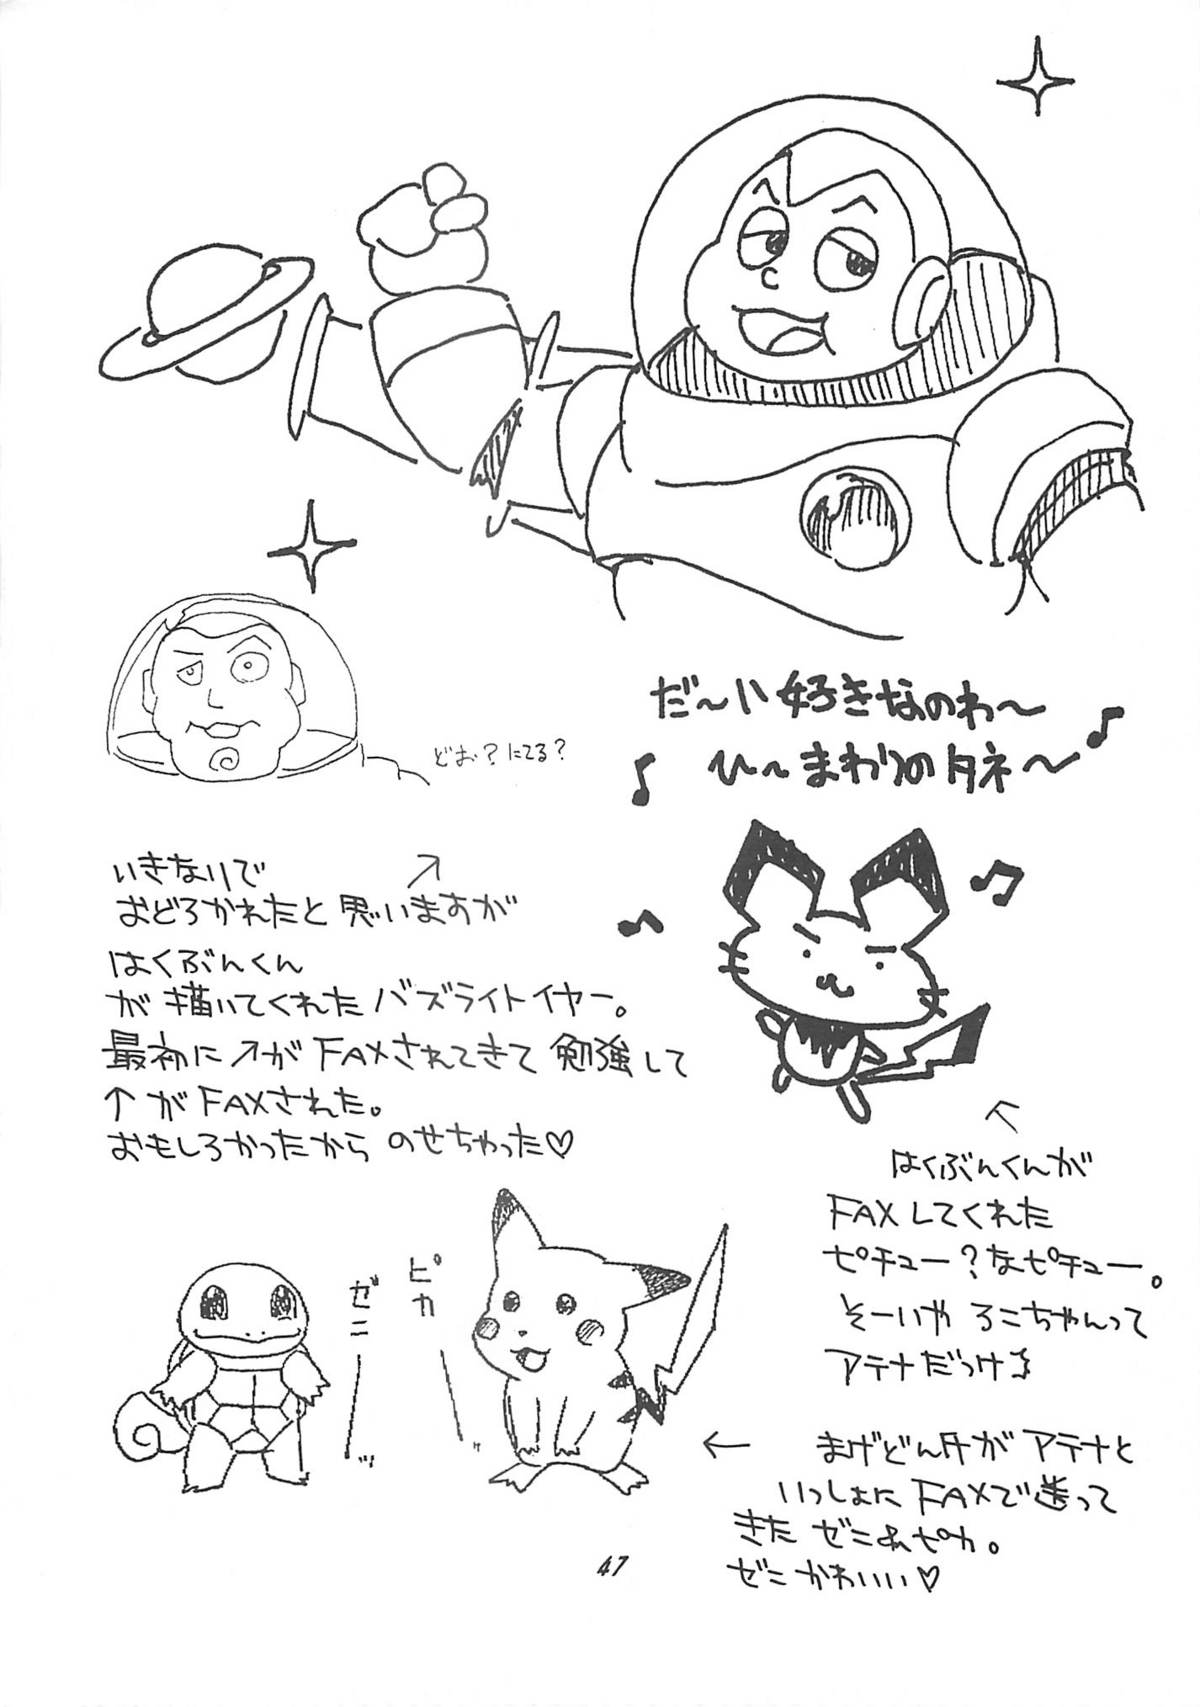 だ〜い好きなのわ〜
ひ〜まわりのタネ〜
どお？にてる？
いきなりで
おどろかれたと思いますが
はくぶんくん
が描いてくれたバズライトイヤー。
最初に↗がFAXされてきて勉強して
↑がFAXされた。
おもしろかったからのせちゃった♡
はくぶんくんが
FAXしてくれた
ピチュー？なピチュー。
そーいやろこちゃんって
アテナだっけ
ピカーッ
ゼニーッ
← まげどんHがアテナと
いっしょにFAXで送って
きたゼニ&ピカ。
ゼニかわいい♡
47